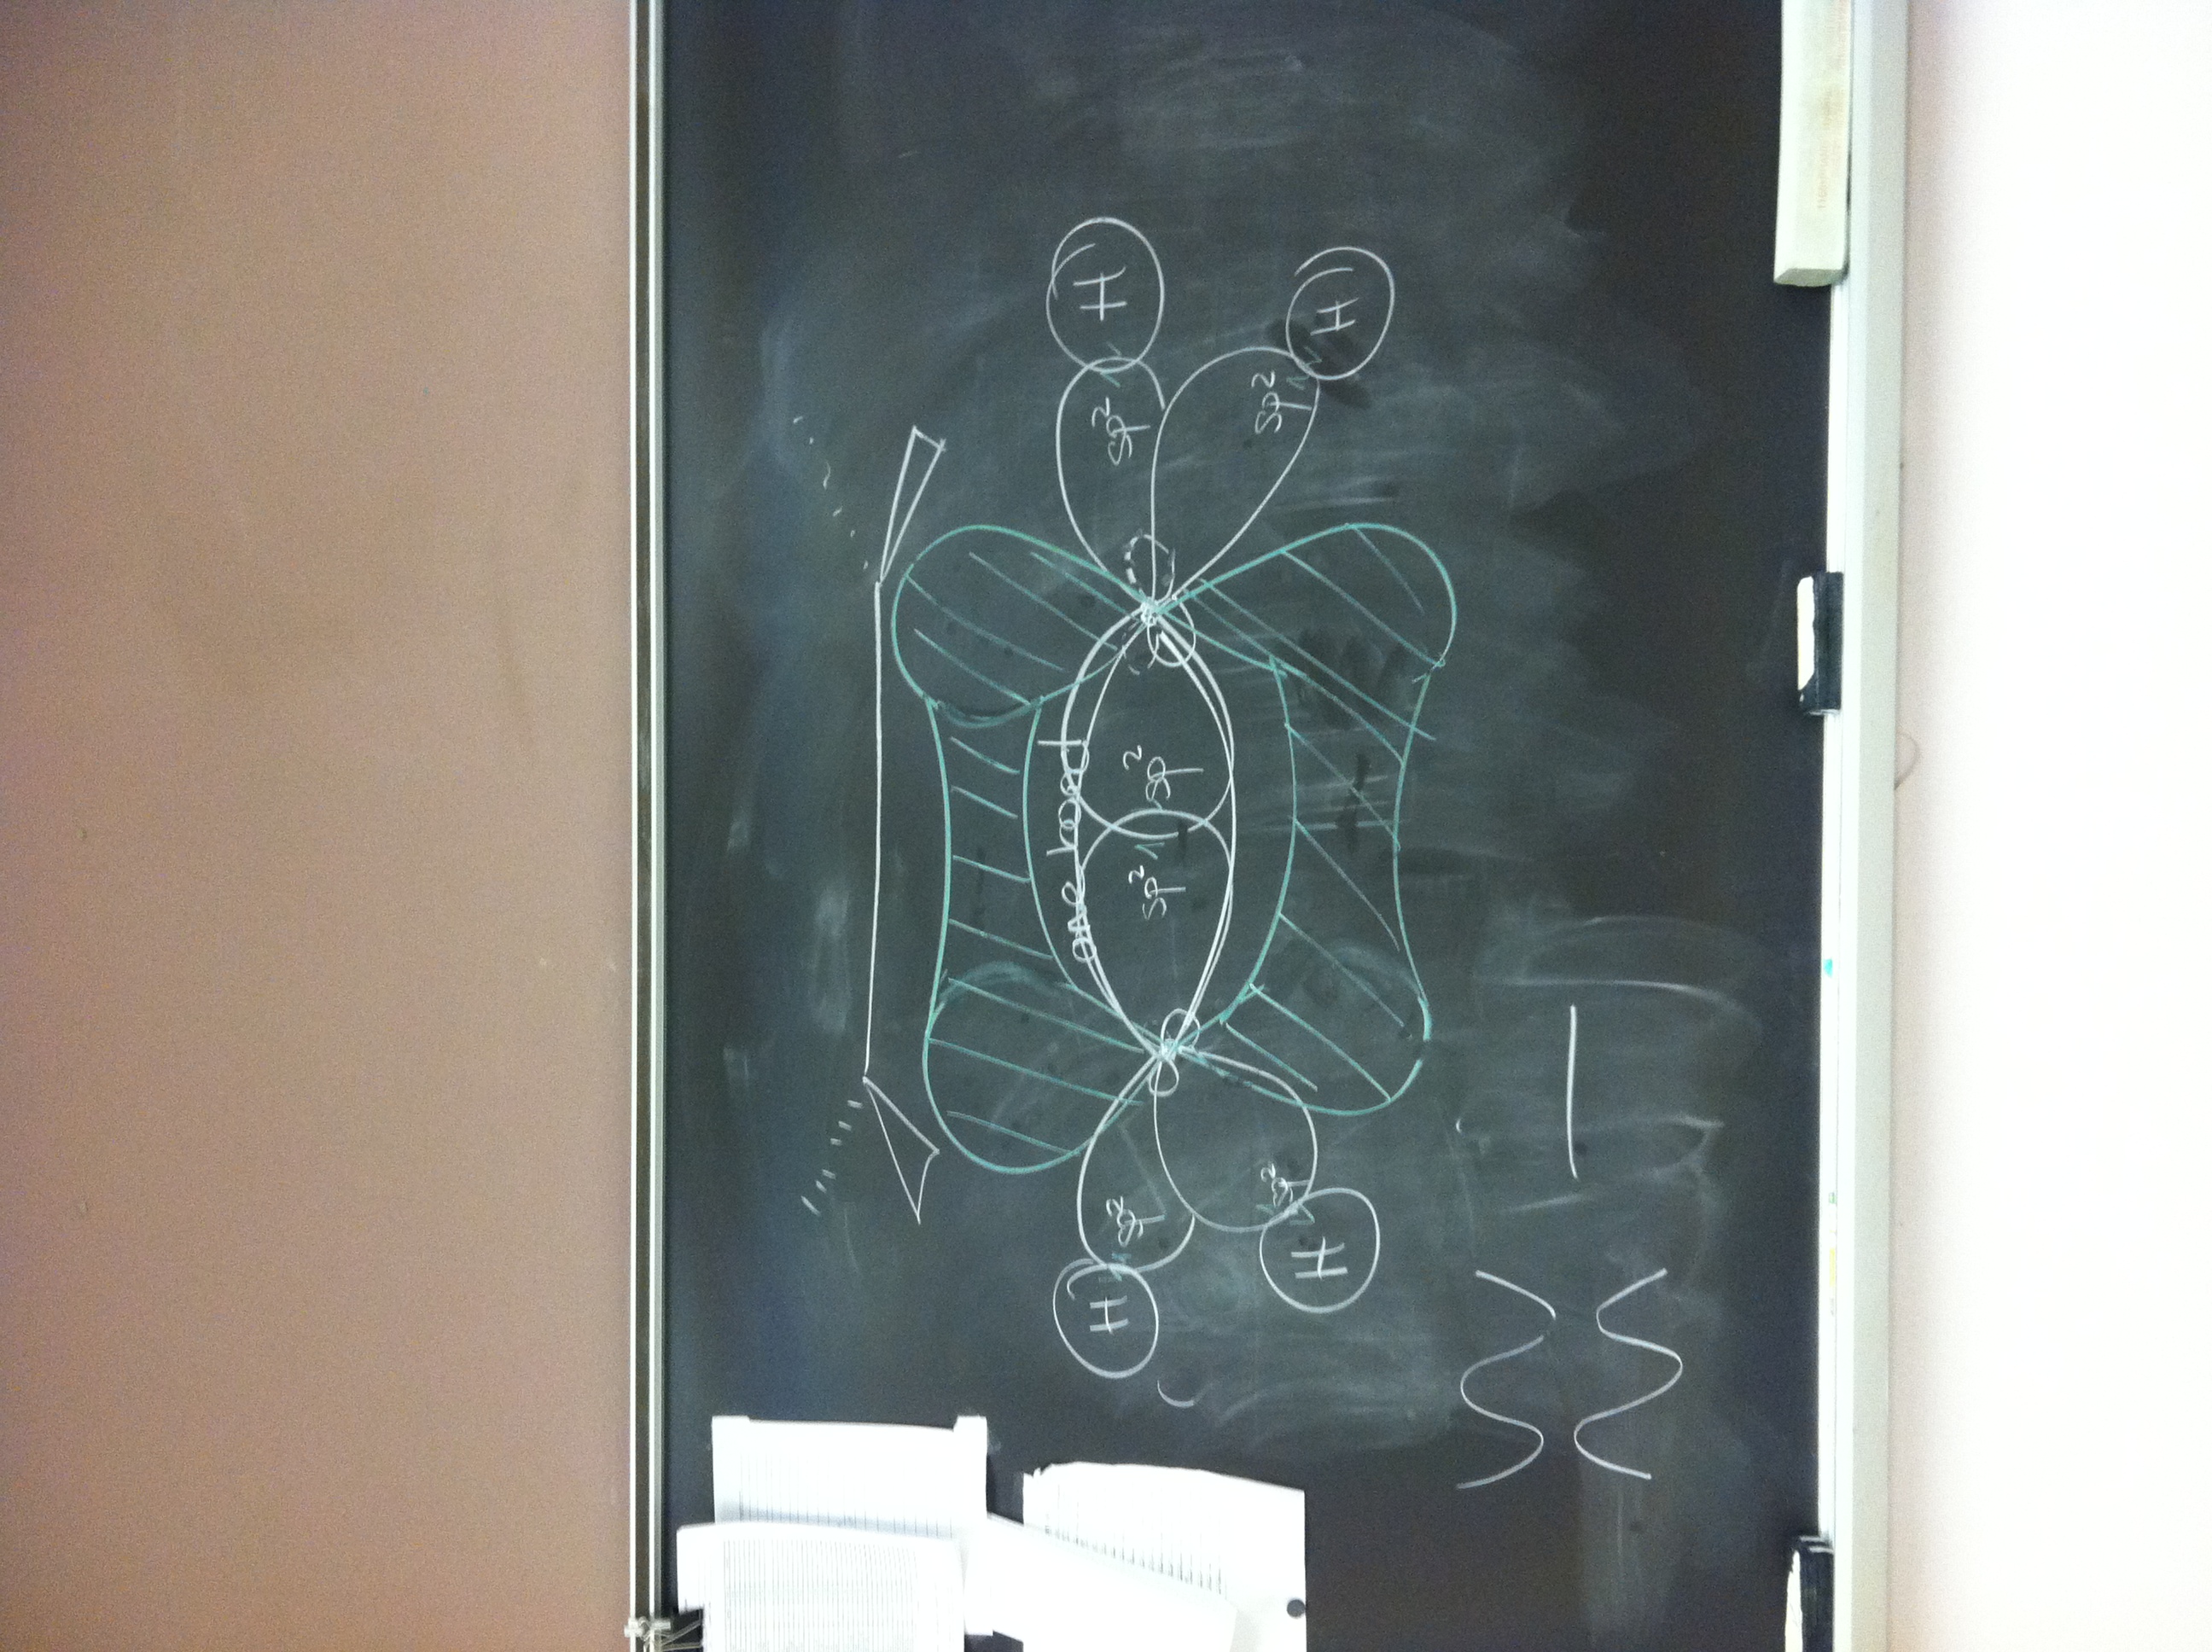 one bond
H sp² sp² sp² sp² H
H sp² sp² H